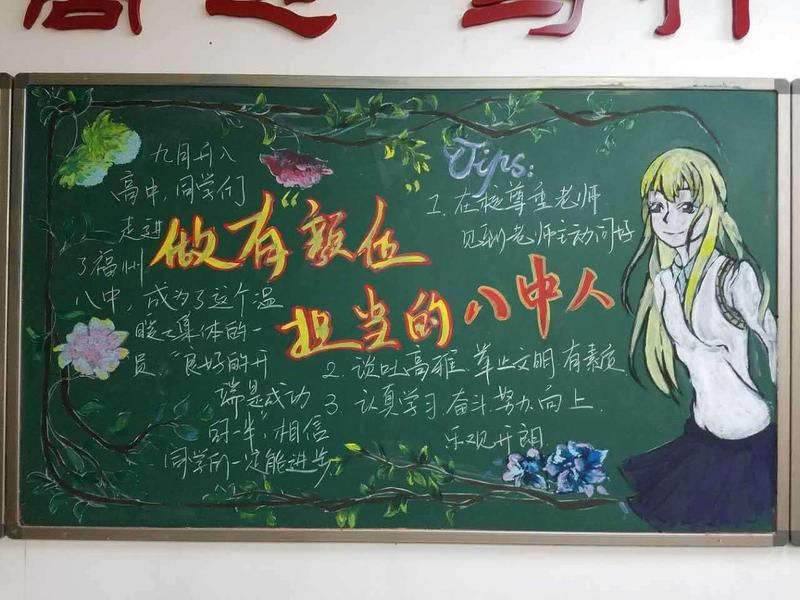 九月开入
高中,同学们
走进
了福州
八中,成为了这个温
暖之集体的一
员“良好的开
端是成功
的一半,相信
同学们一定能进步
做有“额任”
担当的八中人
Tips:
1. 在校尊重老师
见到老师主动问好
2. 谈吐高雅 举止文明 有素质
3. 认真学习.奋斗.努力向上.
乐观开朗